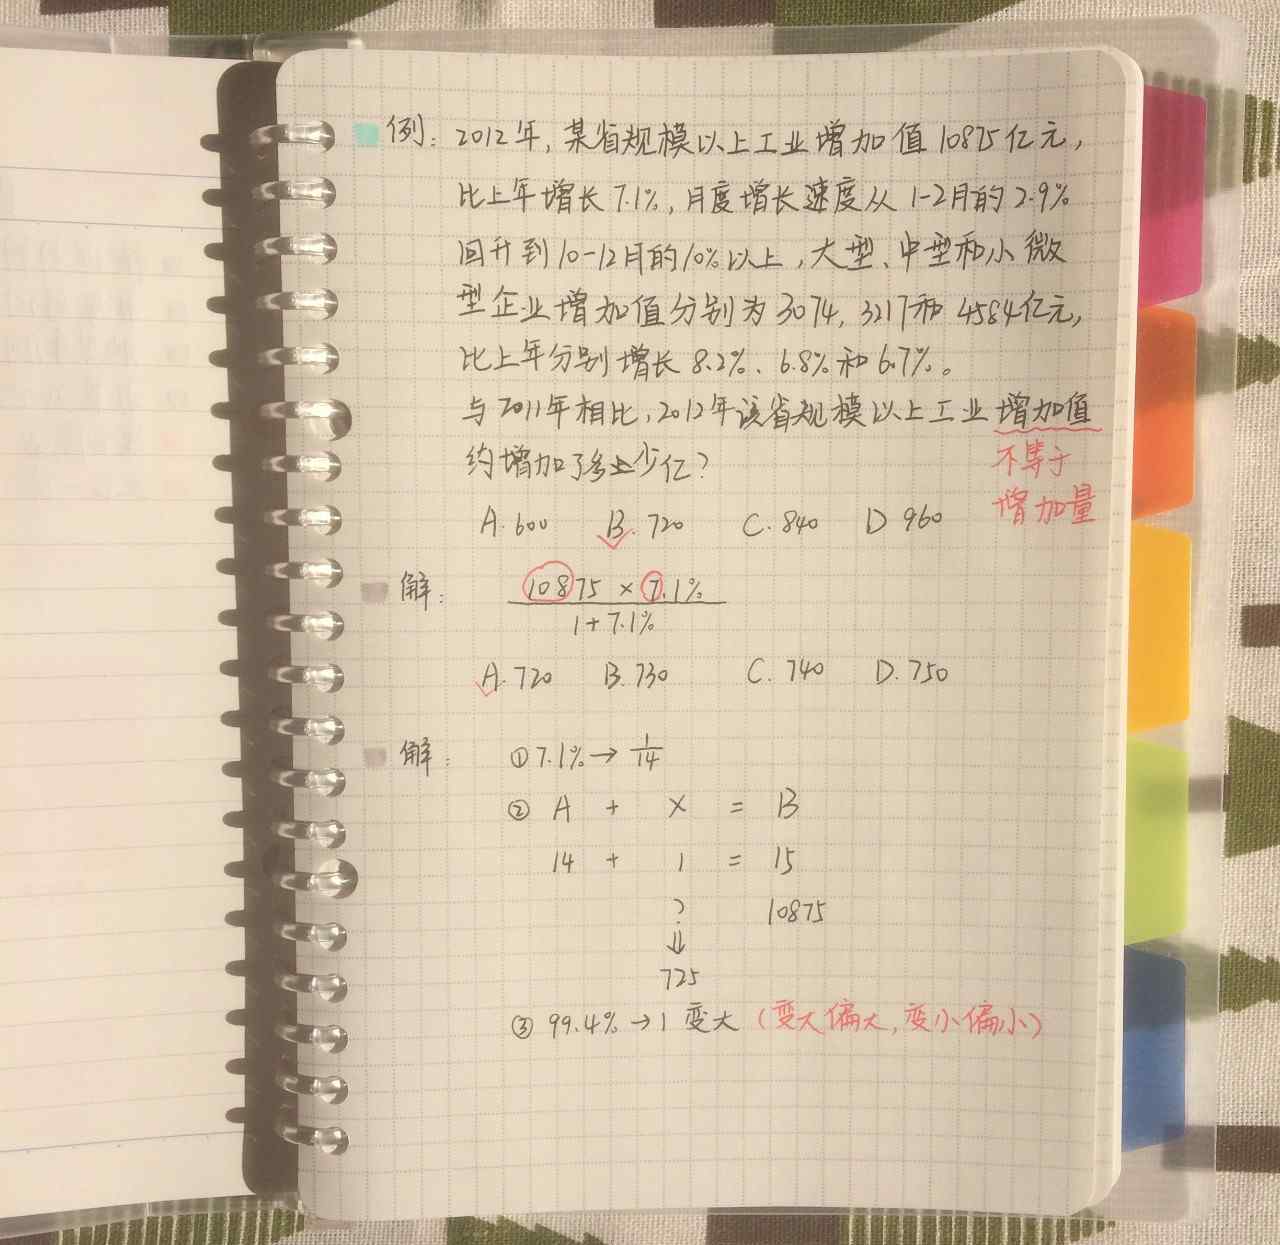 例: 2012年,某省规模以上工业增加值10875亿元,
比上年增长7.1%,月度增长速度从1-2月的2.9%
回升到10-12月的10%以上,大型、中型和小微
型企业增加值分别为3074,3217和4584亿元,
比上年分别增长8.2%、6.8%和6.7%。
与2011年相比,2012年该省规模以上工业增加值
约增加了多少亿?
不等于
增加量
A.600 B.720 C.840 D 960
解: 10875 × 7.1%
1+7.1%
A.720 B.730 C.740 D.750
解: ①7.1%→1/14
② A + X = B
14 + 1 = 15
? 10875
⇓
725
③ 99.4%→1 变大 (变大偏大,变小偏小)